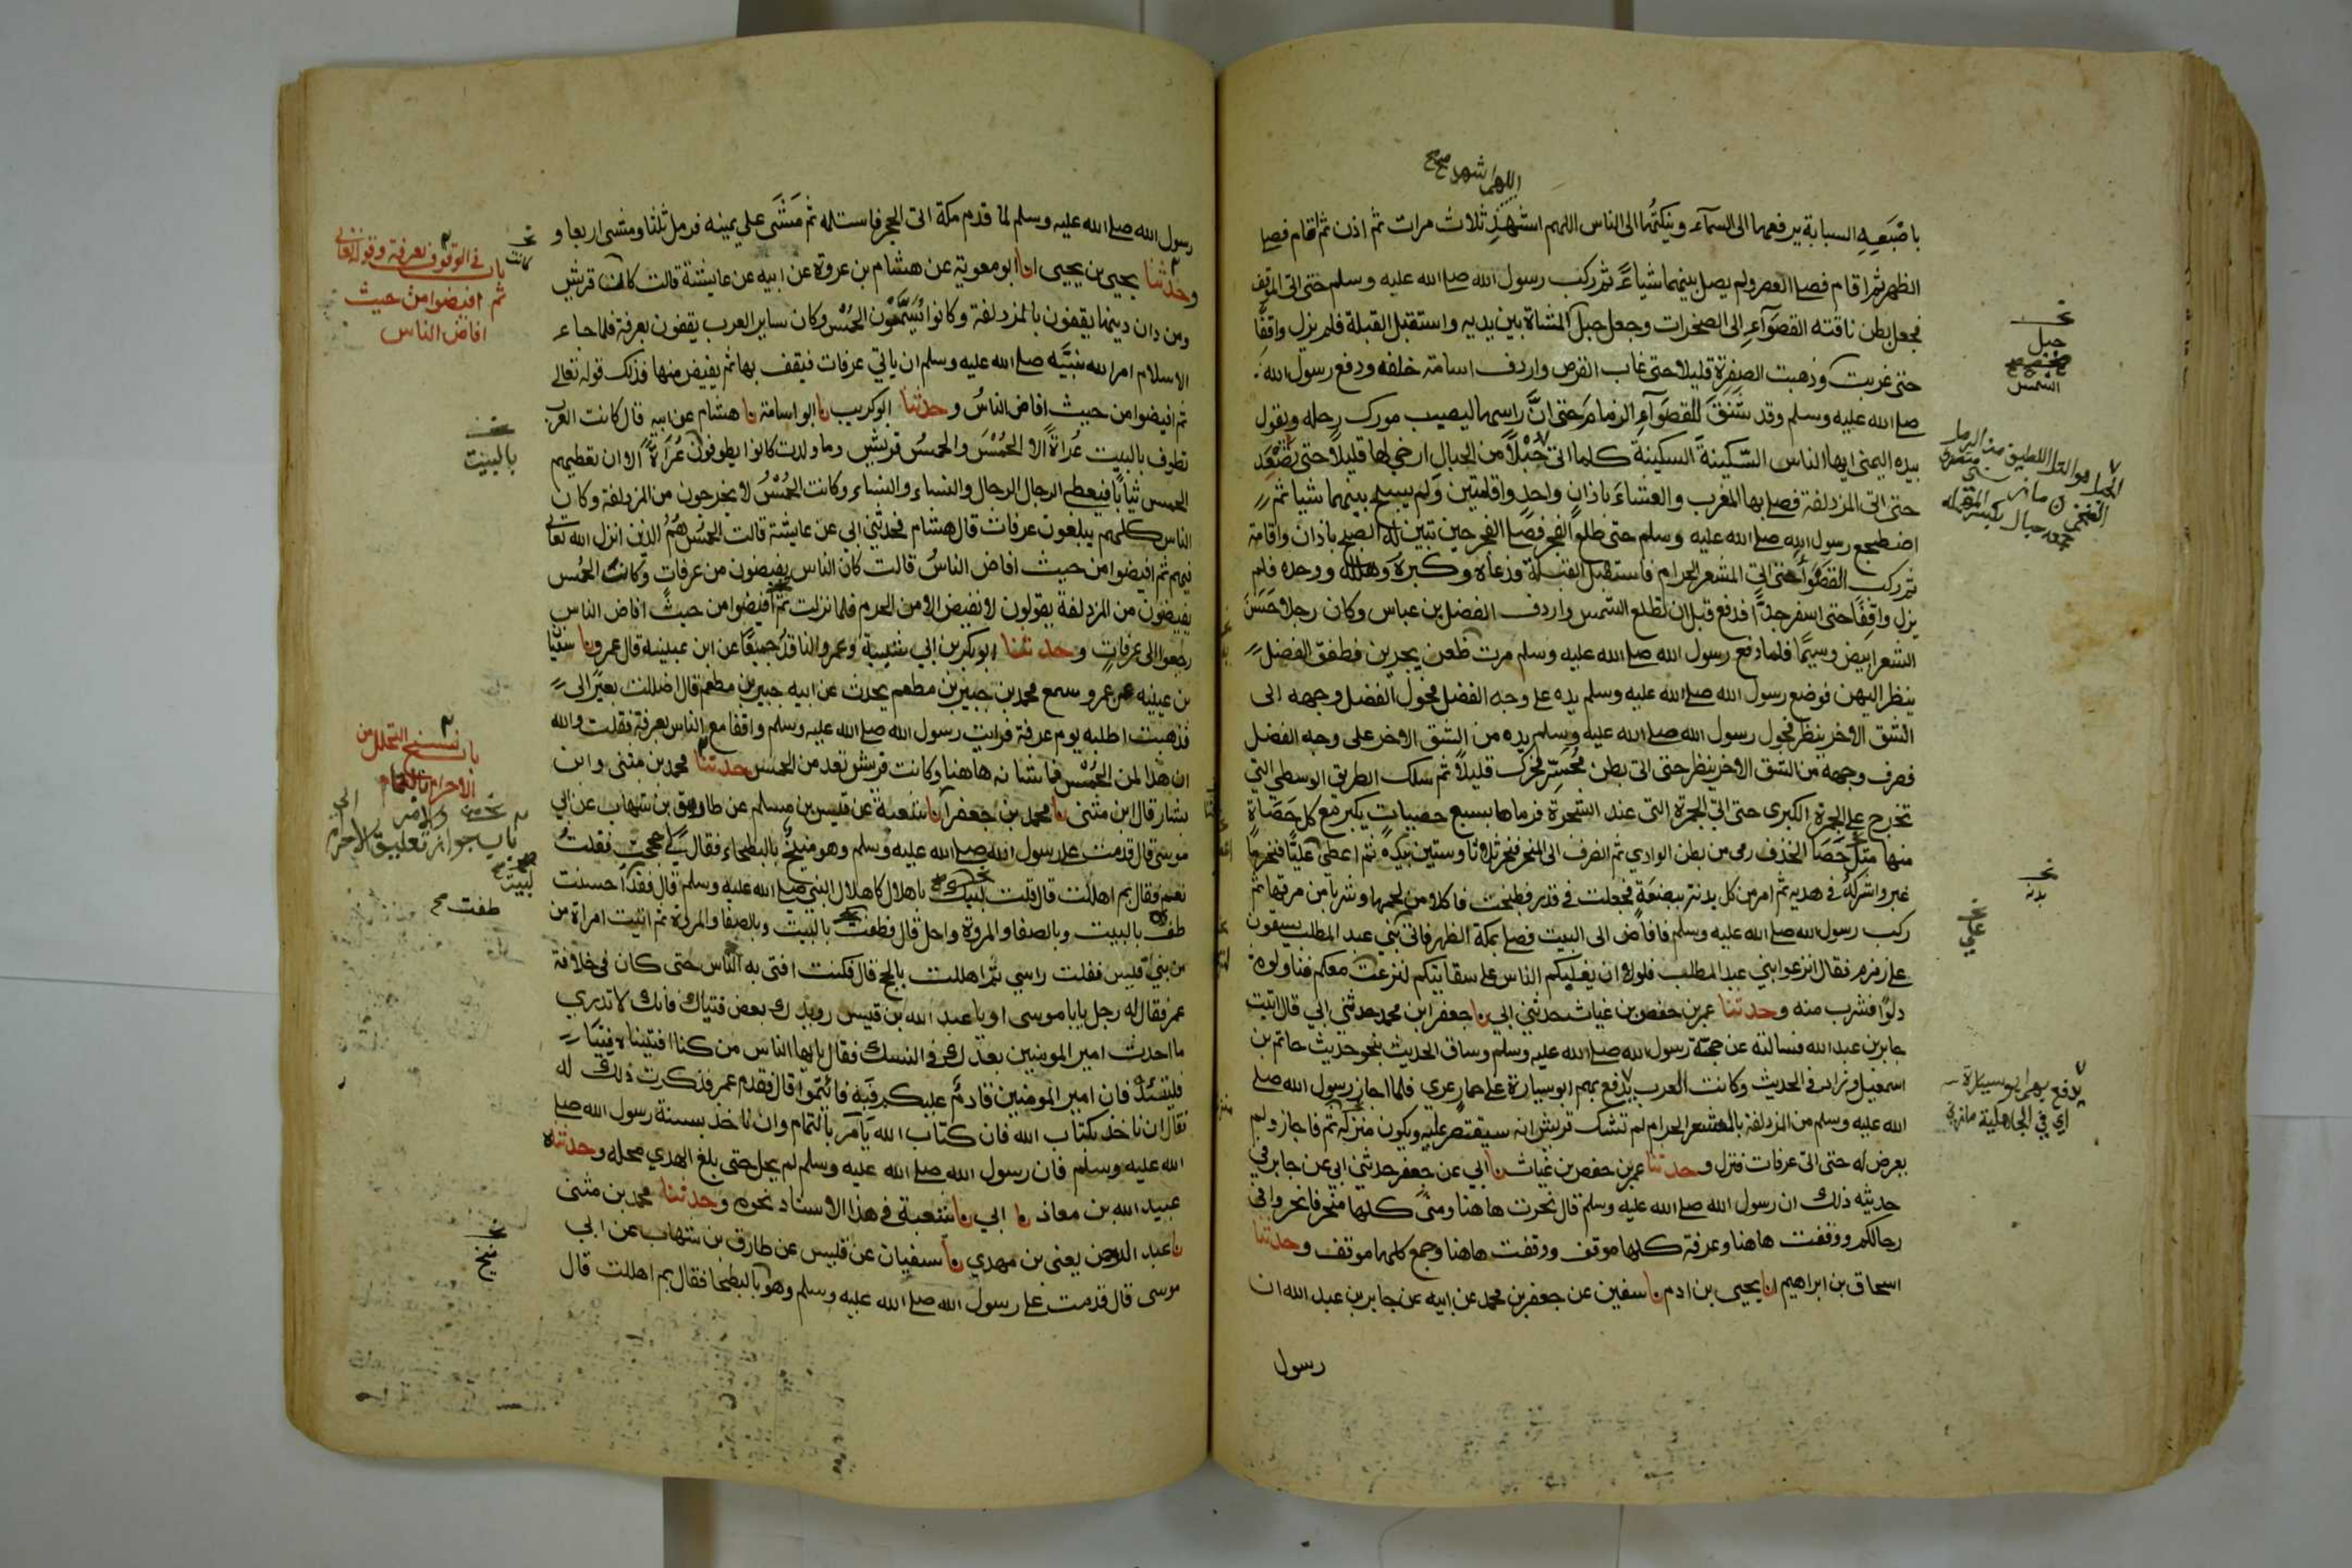 اللهم اشهد صح
باصبعه السبابة يرفعها الى السماء وينكتها الى الناس اللهم اشهد ثلاث مرات ثم اذن ثم اقام فصلى
الظهر ثم اقام فصلى العصر ولم يصل بينهما شيأ ثم ركب رسول الله صلى الله عليه وسلم حتى اتى الموقف
فجعل بطن ناقته القصواء الى الصخرات وجعل حبل المشاة بين يديه واستقبل القبلة فلم يزل واقفا
حتى غربت وذهبت الصفرة قليلا حتى غاب القرص واردف اسامة خلفه ودفع رسول الله
صلى الله عليه وسلم وقد شنق للقصواء الزمام حتى ان راسها ليصيب مورك رحله ويقول
بيده اليمنى ايها الناس السكينة السكينة كلما اتى حبلا من الحبال ارخى لها قليلا حتى تصعد
حتى اتى المزدلفة فصلى بها المغرب والعشاء باذان واحد واقامتين ولم يسبح بينهما شيأ ثم
اضطجع رسول الله صلى الله عليه وسلم حتى طلع الفجر فصلى الفجر حين تبين له الصبح باذان واقامة
ثم ركب القصواء حتى اتى المشعر الحرام فاستقبل القبلة فدعاه وكبره وهلله ووحده فلم
يزل واقفا حتى اسفر جدا فدفع قبل ان تطلع الشمس واردف الفضل بن عباس وكان رجلا حسن
الشعر ابيض وسيما فلما دفع رسول الله صلى الله عليه وسلم مرت ظعن يجرين فطفق الفضل
ينظر اليهن فوضع رسول الله صلى الله عليه وسلم يده على وجه الفضل فحول الفضل وجهه الى
الشق الاخر ينظر فحول رسول الله صلى الله عليه وسلم يده من الشق الاخر على وجه الفضل
فصرف وجهه من الشق الاخر ينظر حتى اتى بطن محسر فحرك قليلا ثم سلك الطريق الوسطى التي
تخرج على الجمرة الكبرى حتى اتى الجمرة التي عند الشجرة فرماها بسبع حصيات يكبر مع كل حصاة
منها مثل حصا الخذف رمى من بطن الوادي ثم انصرف الى المنحر فنحر ثلاثا وستين بيده ثم اعطى عليا فنحر ما
غبر واشركه في هديه ثم امر من كل بدنة ببضعة فجعلت في قدر فطبخت فاكلا من لحمها وشربا من مرقها ثم
ركب رسول الله صلى الله عليه وسلم فافاض الى البيت فصلى بمكة الظهر فاتى بني عبد المطلب يسقون
على زمزم فقال انزعوا بني عبد المطلب فلولا ان يغلبكم الناس على سقايتكم لنزعت معكم فناولوه
دلوا فشرب منه وحدثنا عمر بن حفص بن غياث حدثني ابي نا جعفر ابن محمد حدثني ابي قال اتيت
جابر بن عبد الله فسالته عن حجة رسول الله صلى الله عليه وسلم وساق الحديث بنحو حديث حاتم بن
اسمعيل وزاد في الحديث وكانت العرب يدفع بهم ابو سيارة على حمار عري فلما اجاز رسول الله صلى
الله عليه وسلم من المزدلفة بالمشعر الحرام لم تشك قريش انه سيقتصر عليه ويكون منزله ثم فاجاز ولم
يعرض له حتى اتى عرفات فنزل وحدثنا عمر بن حفص بن غياث نا ابي عن جعفر حدثني ابي عن جابر في
حديثه ذلك ان رسول الله صلى الله عليه وسلم قال نحرت هاهنا ومنى كلها منحر فانحروا في
رحالكم ووقفت هاهنا وعرفة كلها موقف ووقفت هاهنا وجمع كلها موقف وحدثنا
اسحاق بن ابراهيم انا يحيى بن ادم نا سفين عن جعفر بن محمد عن ابيه عن جابر بن عبد الله ان
رسول
جبل
الشمس
بدنة
يدفع بهم ابو سيارة
اي في الجاهلية
رسول الله صلى الله عليه وسلم لما قدم مكة اتى الحجر فاستلمه ثم مشى على يمينه فرمل ثلثا ومشى اربعا و
وحدثنا يحيى بن يحيى انا ابو معوية عن هشام بن عروة عن ابيه عن عايشة قالت كان قريش
ومن دان دينها يقفون بالمزدلفة وكانوا يسمون الحمس وكان ساير العرب يقفون بعرفة فلما جاء
الاسلام امر الله نبيه صلى الله عليه وسلم ان ياتي عرفات فيقف بها ثم يفيض منها فذلك قوله تعالى
ثم افيضوا من حيث افاض الناس وحدثنا ابو كريب نا ابو اسامة نا هشام عن ابيه قال كانت العرب
تطوف بالبيت عراة الا الحمس والحمس قريش وما ولدت كانوا يطوفون عراة الا ان تعطيهم
الحمس ثيابا فيعطى الرجال الرجال والنساء والنساء وكانت الحمس لا يخرجون من المزدلفة وكان
الناس كلهم يبلغون عرفات قال هشام فحدثني ابي عن عايشة قالت الحمس هم الذين انزل الله تعالى
فيهم ثم افيضوا من حيث افاض الناس قالت كان الناس يفيضون من عرفات وكانت الحمس
يفيضون من المزدلفة يقولون لا نفيض الا من الحرم فلما نزلت ثم افيضوا من حيث افاض الناس
رجعوا الى عرفات وحدثنا ابو بكر بن ابي شيبة وعمرو الناقد جميعا عن ابن عيينة قال عمرو نا سفيان
بن عيينة عن عمرو سمع محمد بن جبير بن مطعم يحدث عن ابيه جبير بن مطعم قال اضللت بعيرا لي
فذهبت اطلبه يوم عرفة فرايت رسول الله صلى الله عليه وسلم واقفا مع الناس بعرفة فقلت والله
ان هذا لمن الحمس فما شانه هاهنا وكانت قريش تعد من الحمس حدثنا محمد بن مثنى وابن
بشار قال ابن مثنى نا محمد بن جعفر انا شعبة عن قيس بن مسلم عن طارق بن شهاب عن ابي
موسى قال قدمت على رسول الله صلى الله عليه وسلم وهو منيخ بالبطحاء فقال لي احججت فقلت
نعم فقال بم اهللت قال قلت لبيك باهلال كاهلال النبي صلى الله عليه وسلم قال فقد احسنت
طف بالبيت وبالصفا والمروة واحل قال فطفت بالبيت وبالصفا والمروة ثم اتيت امراة من
من بني قيس ففلت راسي ثم اهللت بالحج قال فكنت افتي به الناس حتى كان في خلافة
عمر فقال له رجل يابا موسى او يا عبد الله بن قيس رويدك بعض فتياك فانك لا تدري
ما احدث امير المومنين بعدك في النسك فقال يا ايها الناس من كنا افتيناه فتيا
فليتئد فان امير المومنين قادم عليكم فبه فائتموا قال فقدم عمر فذكرت ذلك له
فقال ان ناخذ بكتاب الله فان كتاب الله يامر بالتمام وان ناخذ بسنة رسول الله صلى
الله عليه وسلم فان رسول الله صلى الله عليه وسلم لم يحل حتى بلغ الهدي محله وحدثناه
عبيد الله بن معاذ نا ابي نا شعبة في هذا الاسناد نحوه وحدثنا محمد بن مثنى
نا عبد الرحمن يعني بن مهدي نا سفيان عن قيس عن طارق بن شهاب عن ابي
موسى قال قدمت على رسول الله صلى الله عليه وسلم وهو بالبطحا فقال بم اهللت قال
كانت
باب في الوقوف بعرفة وقوله تعالى
ثم افيضوا من حيث
افاض الناس
بالبيت
باب نسخ التحلل من
الاحرام والامر بالتمام
باب جواز تعليق الاحرام
لبيت
طفت صح
منيخ